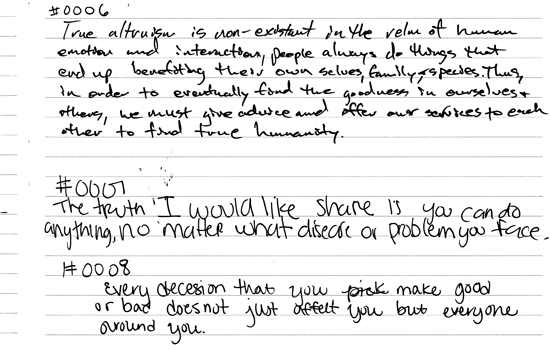 #0006
True altruism is non-existant in the relm of human
emotion and interaction, people always do things that
end up benefiting their own selves, family, + species. Thus,
in order to eventually find the goodness in ourselves +
others, we must give advice and offer our services to each
other to find true humanity.
#0007
The truth I would like share is you can do
anything, no matter what disease or problem you face.
#0008
Every decesion that you pick make good
or bad does not just affect you but everyone
around you.